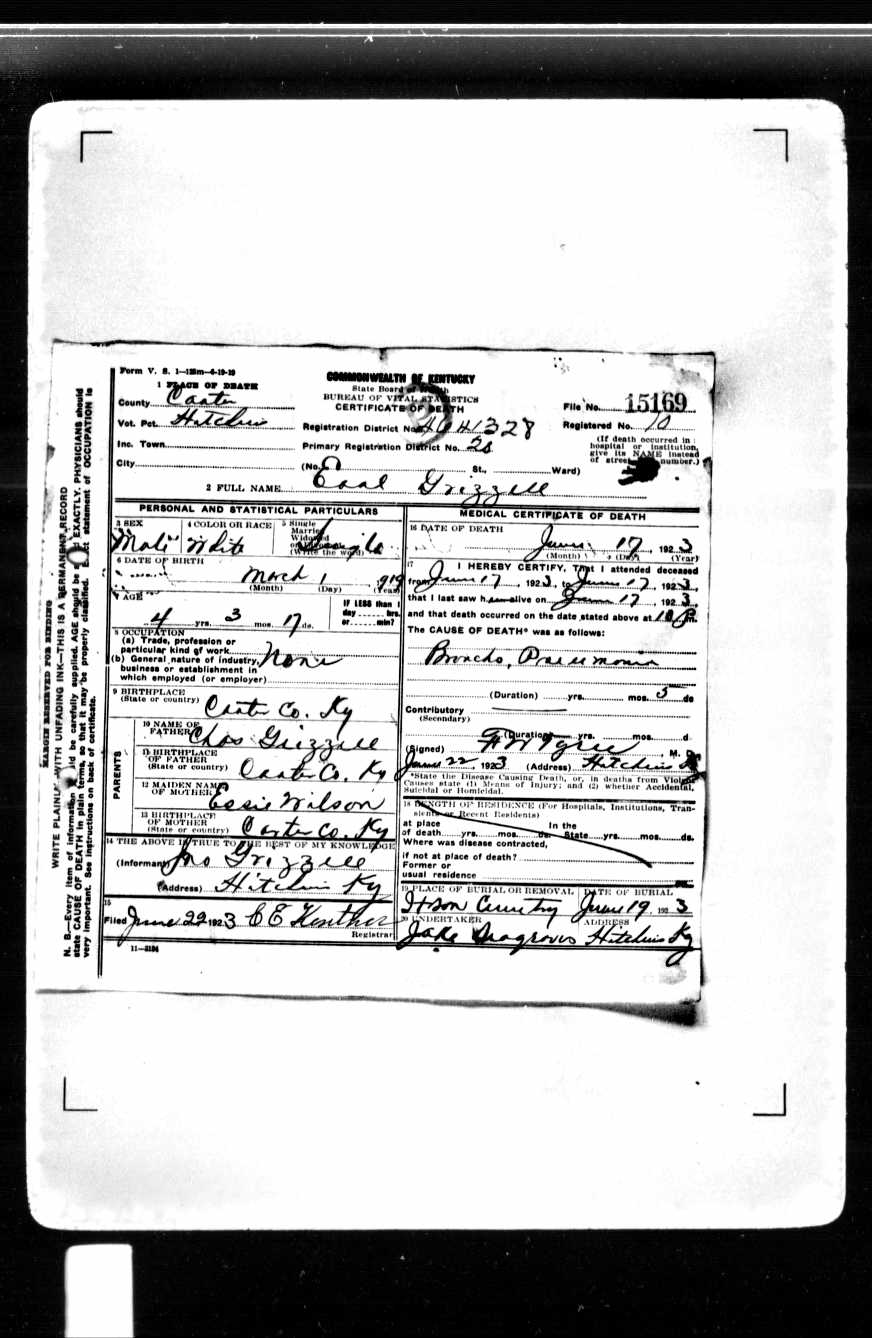 Form V. S. 1—125m—4-19-19
COMMONWEALTH OF KENTUCKY
State Board of Health
BUREAU OF VITAL STATISTICS
CERTIFICATE OF DEATH
1 PLACE OF DEATH
County Carter
Vot. Pct. Hitchins
Inc. Town
City
Registration District No.
Primary Registration District No. 20
(No. St., Ward)
File No. 15169
Registered No. 10
(If death occurred in
hospital or institution,
give its NAME instead
of street number.)
2 FULL NAME Earl Grizzell
PERSONAL AND STATISTICAL PARTICULARS
3 SEX
Male
4 COLOR OR RACE
White
5 Single
Married
Widowed
or Divorced
(Write the word)
6 DATE OF BIRTH
March 1 1919
(Month) (Day) (Year)
7 AGE
4 yrs. 3 mos. 17 ds.
IF LESS than 1
day hrs.
or min?
8 OCCUPATION
(a) Trade, profession or
particular kind of work
(b) General nature of industry,
business or establishment in
which employed (or employer)
None
9 BIRTHPLACE
(State or country) Carter Co. Ky
PARENTS
10 NAME OF
FATHER Chas Grizzell
11 BIRTHPLACE
OF FATHER
(State or country) Carter Co. Ky
12 MAIDEN NAME
OF MOTHER Essie Wilson
13 BIRTHPLACE
OF MOTHER
(State or country) Carter Co. Ky
14 THE ABOVE IS TRUE TO THE BEST OF MY KNOWLEDGE
(Informant) Jno Grizzell
(Address) Hitchins Ky
15
Filed June 22 1923 C E
Registrar
11—3184
MEDICAL CERTIFICATE OF DEATH
16 DATE OF DEATH
June 17, 1923
(Month) (Day) (Year)
17 I HEREBY CERTIFY, That I attended deceased
from June 17, 1923, to June 17, 1923,
that I last saw h alive on June 17, 1923,
and that death occurred on the date stated above at 10 P m.
The CAUSE OF DEATH* was as follows:
Broncho, Pneumonia
(Duration) yrs. mos. 5 ds
Contributory
(Secondary)
(Duration) yrs. mos. d
(Signed) F W Tyree, M. D.
June 22, 1923 (Address) Hitchins Ky
*State the Disease Causing Death, or, in deaths from Violent
Causes state (1) Means of Injury; and (2) whether Accidental,
Suicidal or Homicidal.
18 LENGTH OF RESIDENCE (For Hospitals, Institutions, Tran-
sients or Recent Residents)
at place
of death yrs. mos. ds.
In the
State yrs. mos. ds.
Where was disease contracted,
if not at place of death?
Former or
usual residence
19 PLACE OF BURIAL OR REMOVAL
Cemetry
DATE OF BURIAL
June 19, 1923
20 UNDERTAKER
Jake Seagroves
ADDRESS
Hitchins Ky
MARGIN RESERVED FOR BINDING
WRITE PLAINLY WITH UNFADING INK—THIS IS A PERMANENT RECORD
N. B.—Every item of information should be carefully supplied. AGE should be stated EXACTLY. PHYSICIANS should
state CAUSE OF DEATH in plain terms, so that it may be properly classified. Exact statement of OCCUPATION is
very important. See instructions on back of certificate.